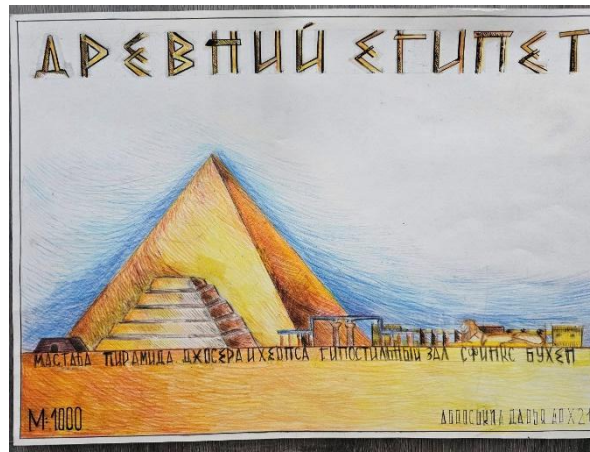 ДРЕВНИЙ ЕГИПЕТ
МАСТАБА ПИРАМИДА ДЖОСЕРА И ХЕОПСА ГИПОСТИЛЬНЫЙ ЗАЛ СФИНКС БУХЕН
М-1000 ДАРЬЯ